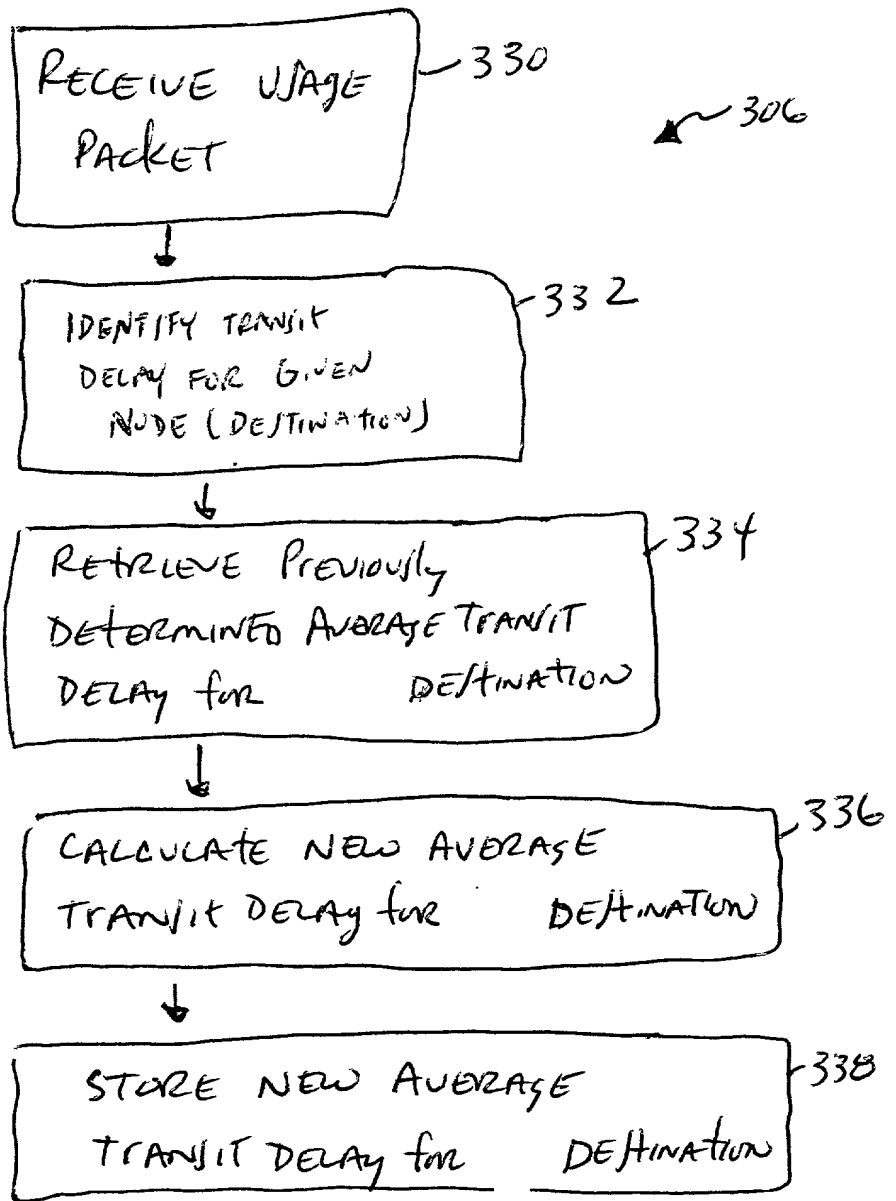 RECEIVE USAGE
PACKET
330
306
IDENTIFY TRANSIT
DELAY FOR GIVEN
NODE (DESTINATION)
332
RETRIEVE PREVIOUSLY
DETERMINED AVERAGE TRANSIT
DELAY for DESTINATION
334
CALCULATE NEW AVERAGE
TRANSIT DELAY for DESTINATION
336
STORE NEW AVERAGE
TRANSIT DELAY for DESTINATION
338